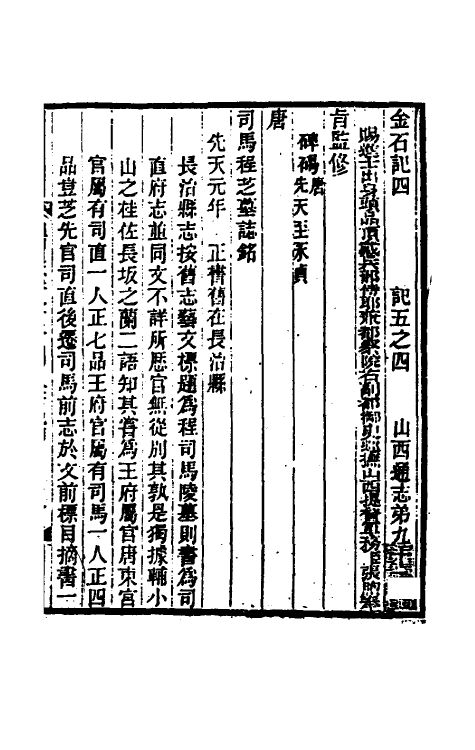 金石記四 記五之四 山西通志弟九
賜進士出身頭品頂戴兵部侍郎兼都察院右副都御史巡撫山西提督鹽務 張煦
旨監修
唐
碑碣唐先天至永貞
司馬程芝墓誌銘
先天元年 正書舊在長治縣
長治縣志按舊志藝文標題為程司馬陵墓則書為司
直府志並同文不詳所歷官無從別其孰是獨據輔小
山之桂佐長坂之蘭二語知其嘗為王府屬官唐東宮
官屬有司直一人正七品王府官屬有司馬一人正四
品豈芝先官司直後遷司馬前志於文前標目摘書一